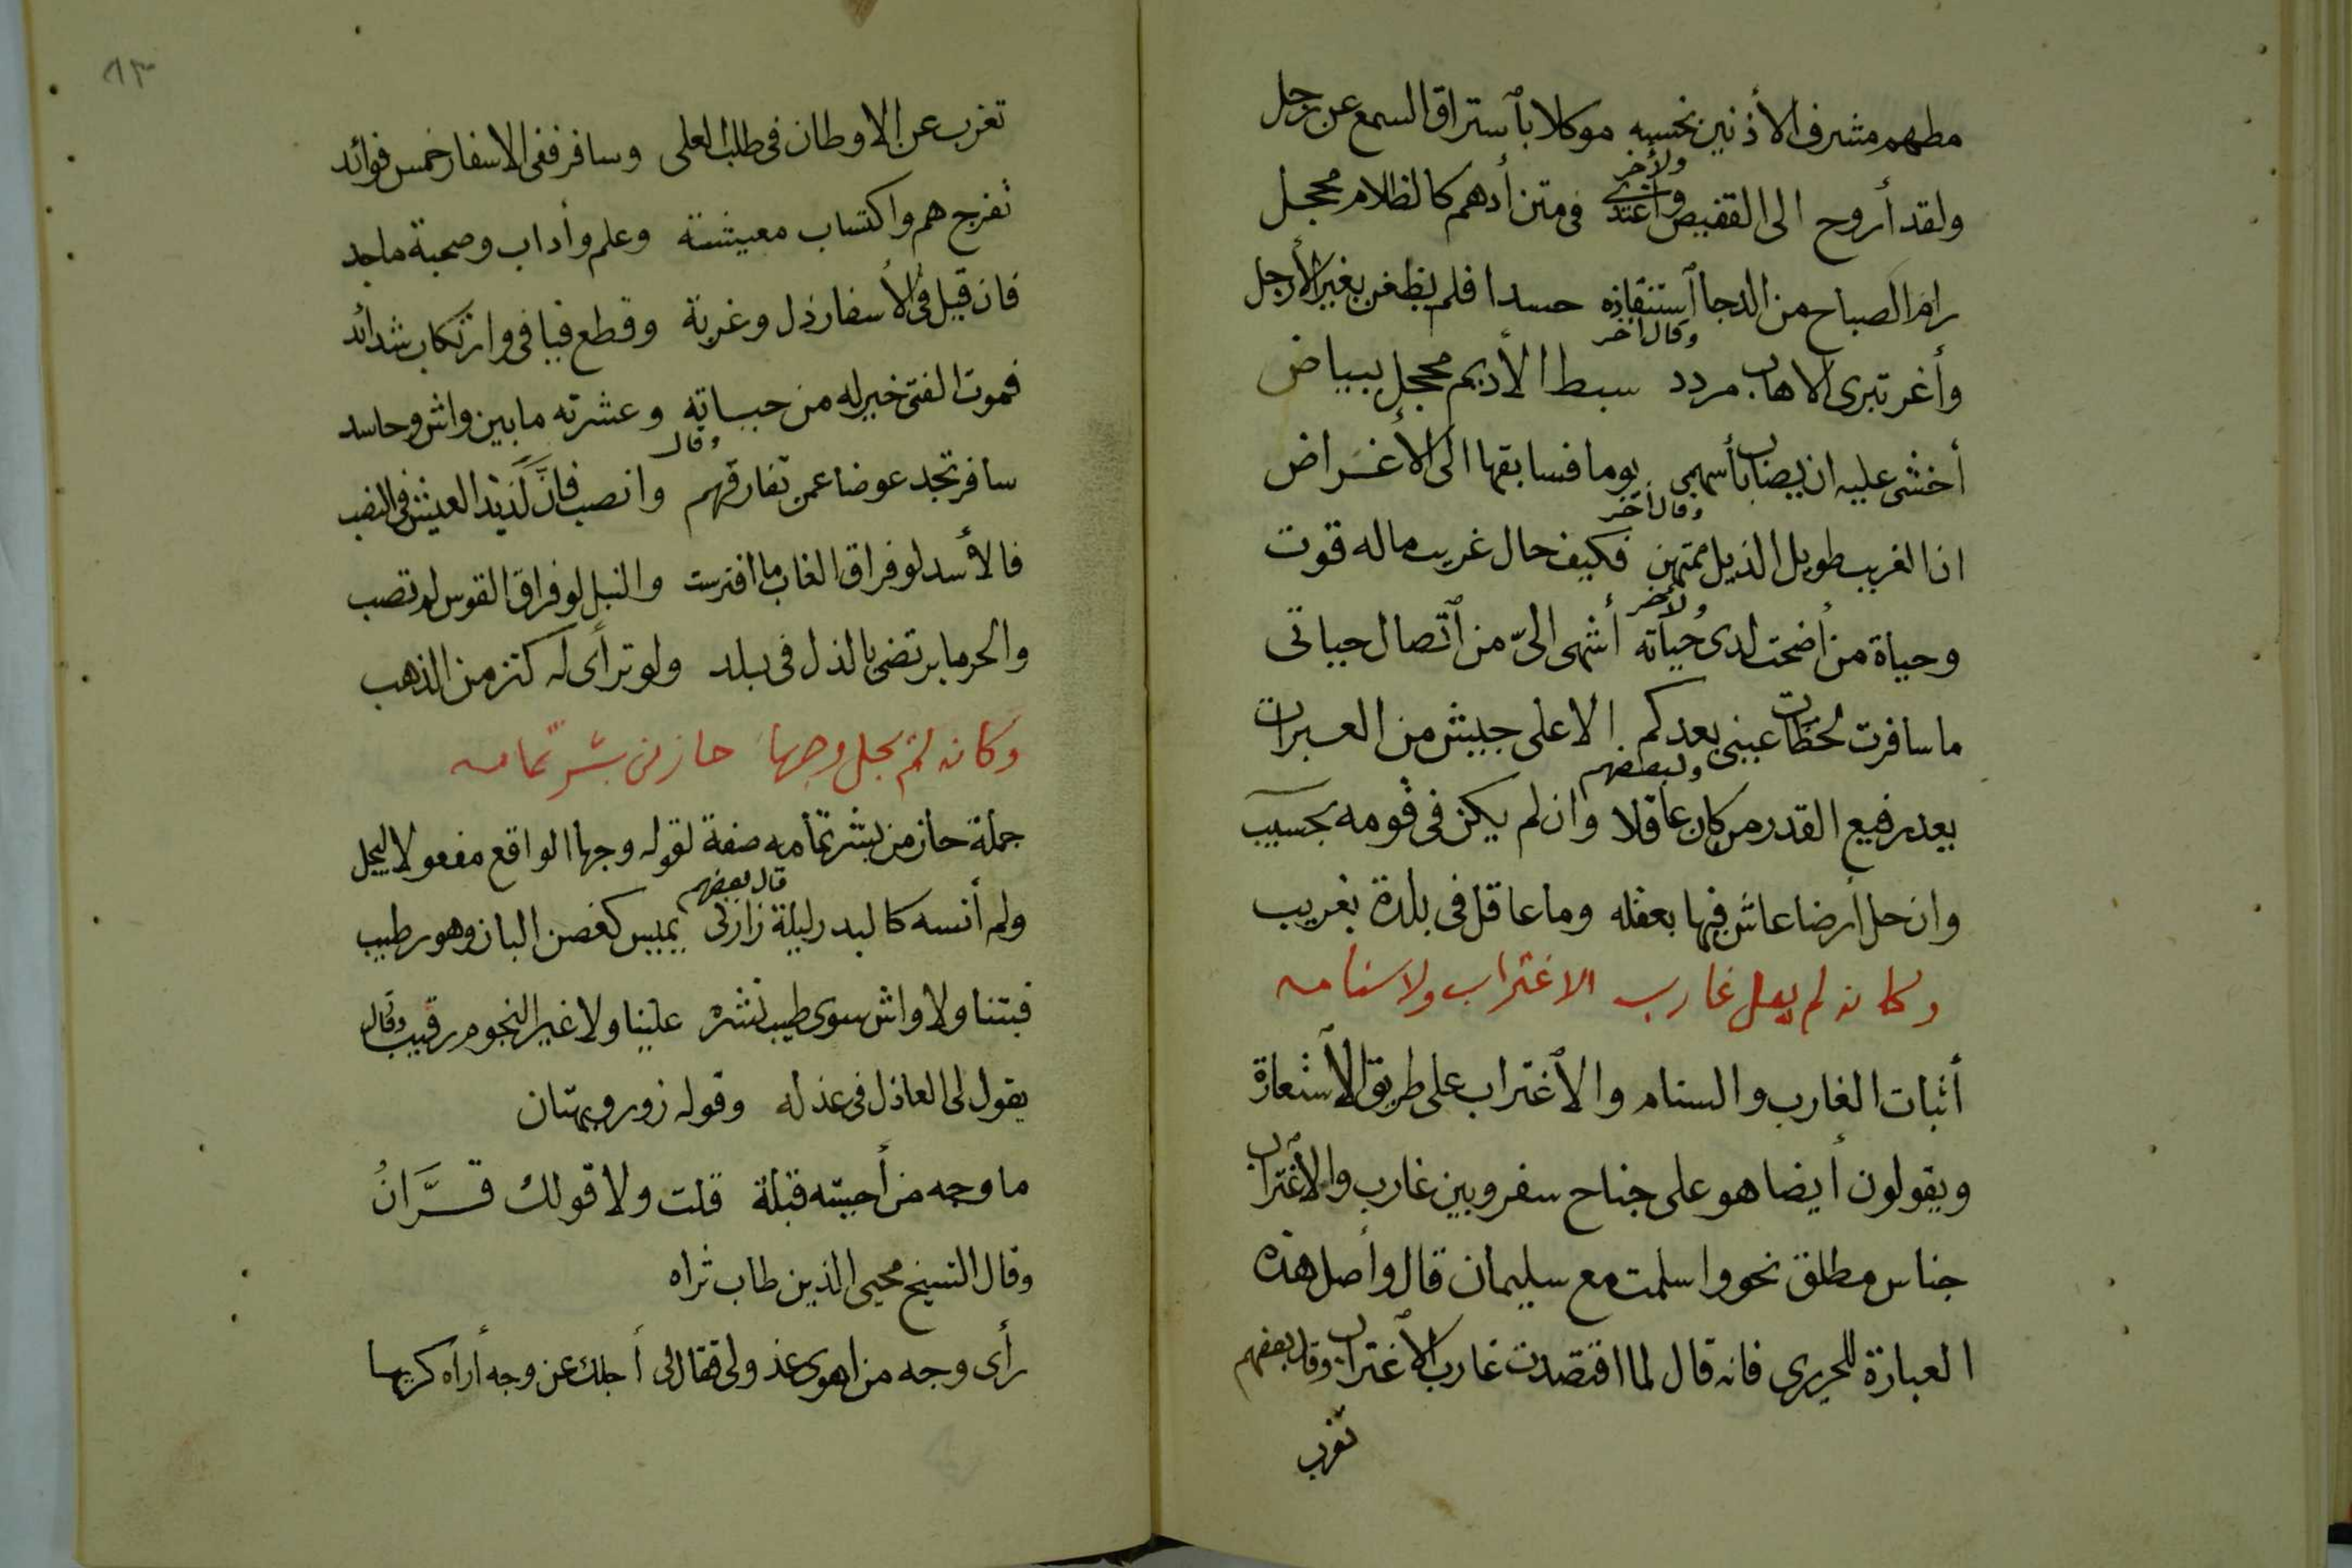 مطهم مشرف الأذنين تحسبه موكلا بٱستراق السمع عن زجل
ولأخر
ولقد أروح الى القفيص وأغتدى فى متن أدهم كالظلام محجل
رام الصباح من الدجا ٱستنقاذه حسدا فلم يظفر بغير الأرجل
وقال أخر
وأغر تبرى الاهاب مردد سبط الأديم محجل ببياض
أخشى عليه ان يصاب بأسهمى يوما فسابقها الى الأغراض
وقال أخر
ان الغريب طويل الذيل ممتهن فكيف حال غريب ماله قوت
ولأخر
وحياة من أضحت لدى حياته أشهى الىّ من ٱتصال حياتى
ما سافرت لحظات عينى بعدكم الا على جيش من العبرات
ولبعضهم
يعد رفيع القدر من كان عاقلا وان لم يكن فى قومه بحسيب
وان حل أرضا عاش فيها بعقله وما عاقل فى بلدة بغريب
وكانه لم يعل غارب الاغتراب ولا سنامه
أثبات الغارب والسنام والٱغتراب على طريق الٱستعارة
ويقولون أيضا هو على جناح سفر وبين غارب والٱغتراب
جناس مطلق نحو واسلمت مع سليمان قال وأصل هذه
العبارة للحريرى فانه قال لما اقتعدت غارب الٱغتراب وقال بعضهم
تغرب
٨٣
تغرب عن الاوطان فى طلب العلى وسافر ففى الاسفار خمس فوائد
تفرج هم واكتساب معيشة وعلم وأداب وصحبة ماجد
فان قيل فى الأسفار ذل وغربة وقطع فيافى وارتكاب شدائد
فموت الفتى خير له من حياته وعشرته ما بين واش وحاسد
وقال
سافر تجد عوضا عمن تفارقهم وانصب فانَّ لَذيذ العيش فى النصب
فالأسد لو فراق الغاب ما افترست والنبل لو فراق القوس لم تصب
والحر ما يرتضى بالذل فى بلد ولو ترأى له كنز من الذهب
وكانه لم يجل وجها حاز من بشر تمامه
جملة حاز من بشر تمامه صفة لقوله وجها الواقع مفعولا ليجل
قال بعضهم
ولم أنسه كالبدر ليلة زارنى يميس كغصن البان وهو رطيب
فبتنا ولا واش سوى طيب نشره علينا ولا غير النجوم رقيب وقال
يقول لى العاذل فى عذله وقوله زور وبهتان
ما وجه من أحببته قبلة قلت ولا قولك قرّانُ
وقال الشيخ محيى الدين طاب ثراه
رأى وجه من اهوى عذولى فقال لى أجلك عن وجه أراه كريها